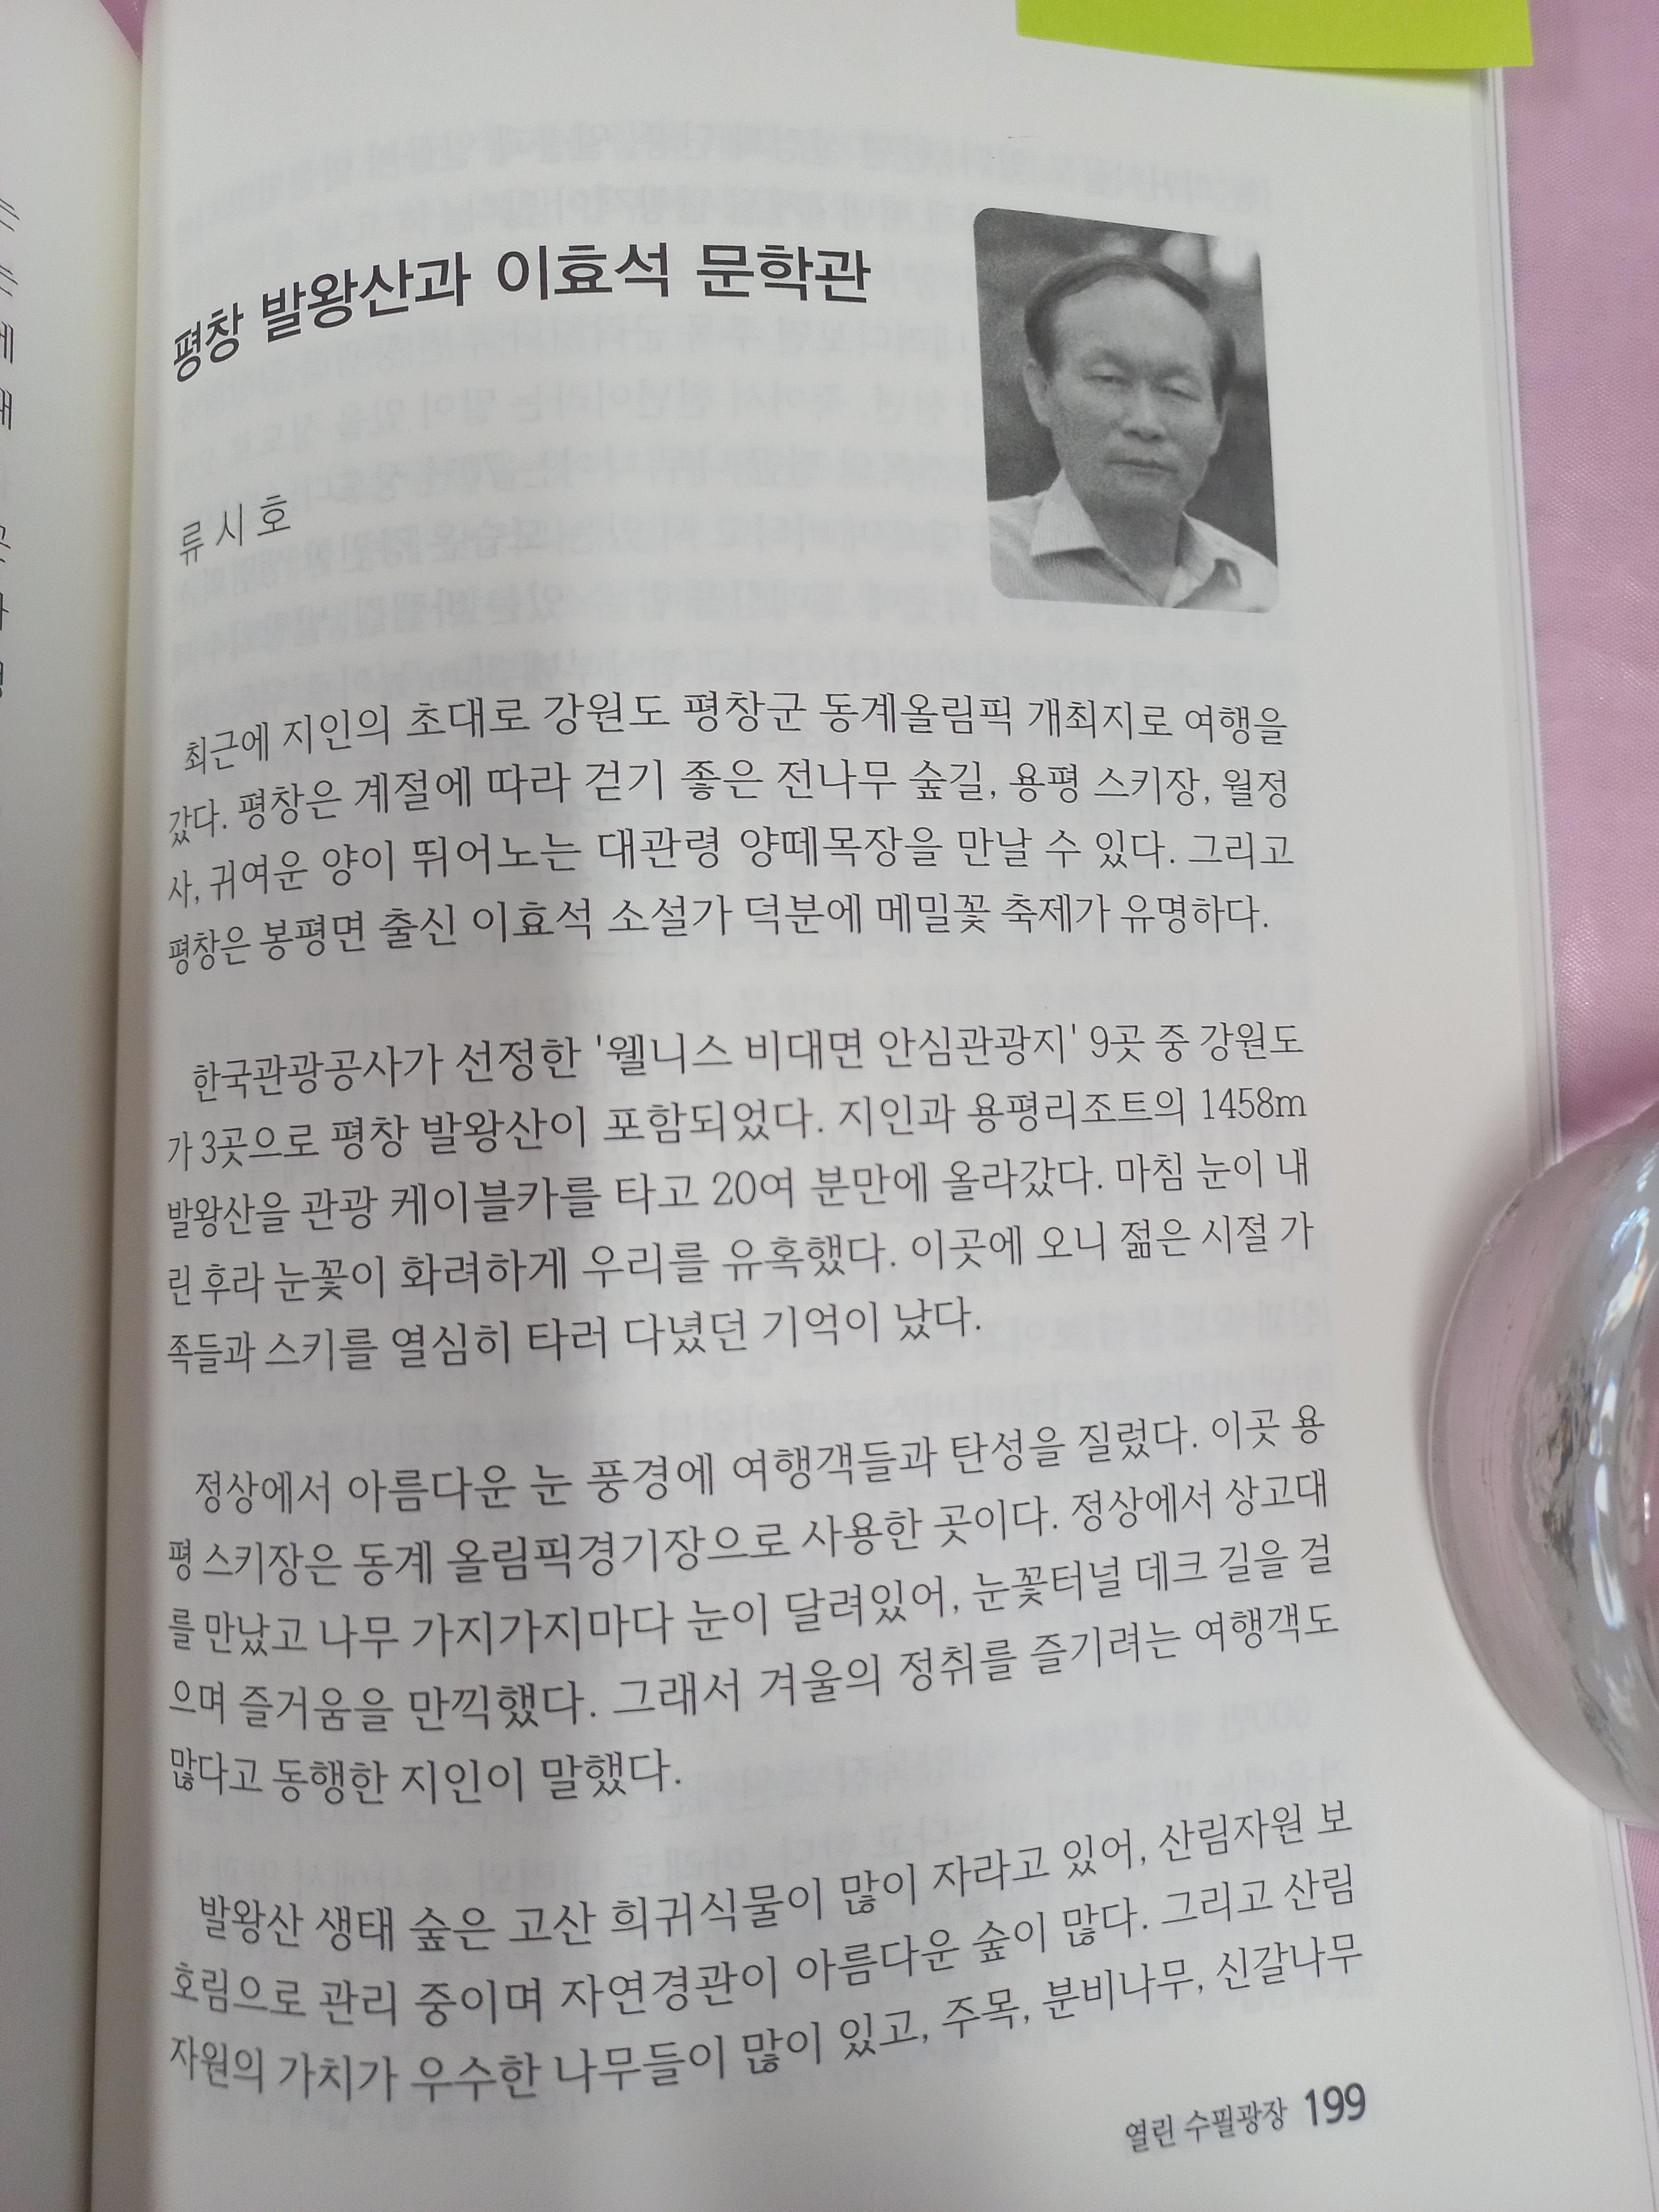 평창 발왕산과 이효석 문학관
류시호
최근에 지인의 초대로 강원도 평창군 동계올림픽 개최지로 여행을
갔다. 평창은 계절에 따라 걷기 좋은 전나무 숲길, 용평 스키장, 월정
사, 귀여운 양이 뛰어노는 대관령 양떼목장을 만날 수 있다. 그리고
평창은 봉평면 출신 이효석 소설가 덕분에 메밀꽃 축제가 유명하다.
한국관광공사가 선정한 '웰니스 비대면 안심관광지' 9곳 중 강원도
가 3곳으로 평창 발왕산이 포함되었다. 지인과 용평리조트의 1458m
발왕산을 관광 케이블카를 타고 20여 분만에 올라갔다. 마침 눈이 내
린 후라 눈꽃이 화려하게 우리를 유혹했다. 이곳에 오니 젊은 시절 가
족들과 스키를 열심히 타러 다녔던 기억이 났다.
정상에서 아름다운 눈 풍경에 여행객들과 탄성을 질렀다. 이곳 용
평 스키장은 동계 올림픽경기장으로 사용한 곳이다. 정상에서 상고대
를 만났고 나무 가지가지마다 눈이 달려있어, 눈꽃터널 데크 길을 걸
으며 즐거움을 만끽했다. 그래서 겨울의 정취를 즐기려는 여행객도
많다고 동행한 지인이 말했다.
발왕산 생태 숲은 고산 희귀식물이 많이 자라고 있어, 산림자원 보
호림으로 관리 중이며 자연경관이 아름다운 숲이 많다. 그리고 산림
자원의 가치가 우수한 나무들이 많이 있고, 주목, 분비나무, 신갈나무
열린 수필광장 199